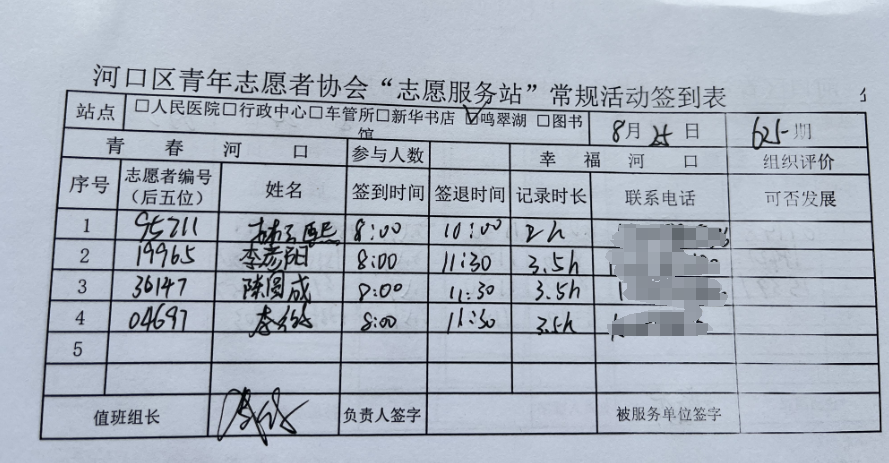 河口区青年志愿者协会“志愿服务站”常规活动签到表
站点 □人民医院□行政中心□车管所□新华书店 ☑鸣翠湖 □图书馆 8月25日 625期
青春河口 参与人数 幸福河口 组织评价
序号 志愿者编号（后五位） 姓名 签到时间 签退时间 记录时长 联系电话 可否发展
1 95711 8:00 10:00 2h
2 19965 李彦阳 8:00 11:30 3.5h
3 36147 陈圆成 8:00 11:30 3.5h
4 04697 8:00 11:30 3.5h
5
值班组长 负责人签字 被服务单位签字